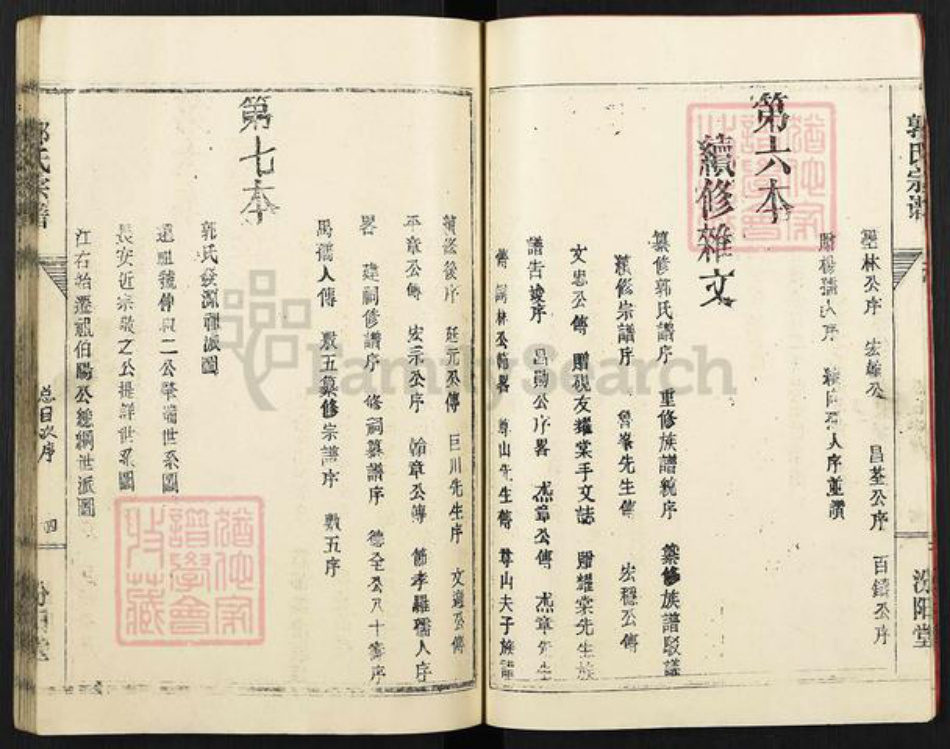 郭氏宗譜
汾阳堂
墨林公序 宏雄公 昌荃公序 百鑄公序
贈楊孺人序
第六本
續修雜文
纂修郭氏譜序 重修族譜統序 纂修族譜駁議
續修宗譜序 魯峯先生傳 宏穩公傳
文忠公傳 贈硯友耀棠手文誌 贈耀棠先生族
譜告竣序 昌勛公序畧 杰章公傳 杰章先生
傳 詞林公傳畧 尊山先生傳 尊山夫子族譜
續修後序 延元公傳 巨川先生序 文適公傳
平章公傳 宏宗公序 翰章公傳 節孝羅孺人序
畧 建祠修譜序 修祠纂譜序 德全公八十壽序
馬孺人傳 敷五纂修宗譜序 敷五序
第七本
郭氏發源福派圖
遠祖虢仲叔二公肇端世系圖
長安近宗敬之公提詳世系圖
江右始遷祖伯陽公總綱世派圖
郭氏宗譜
总目次序
四
汾阳堂
FamilySearch
譜學會
收藏